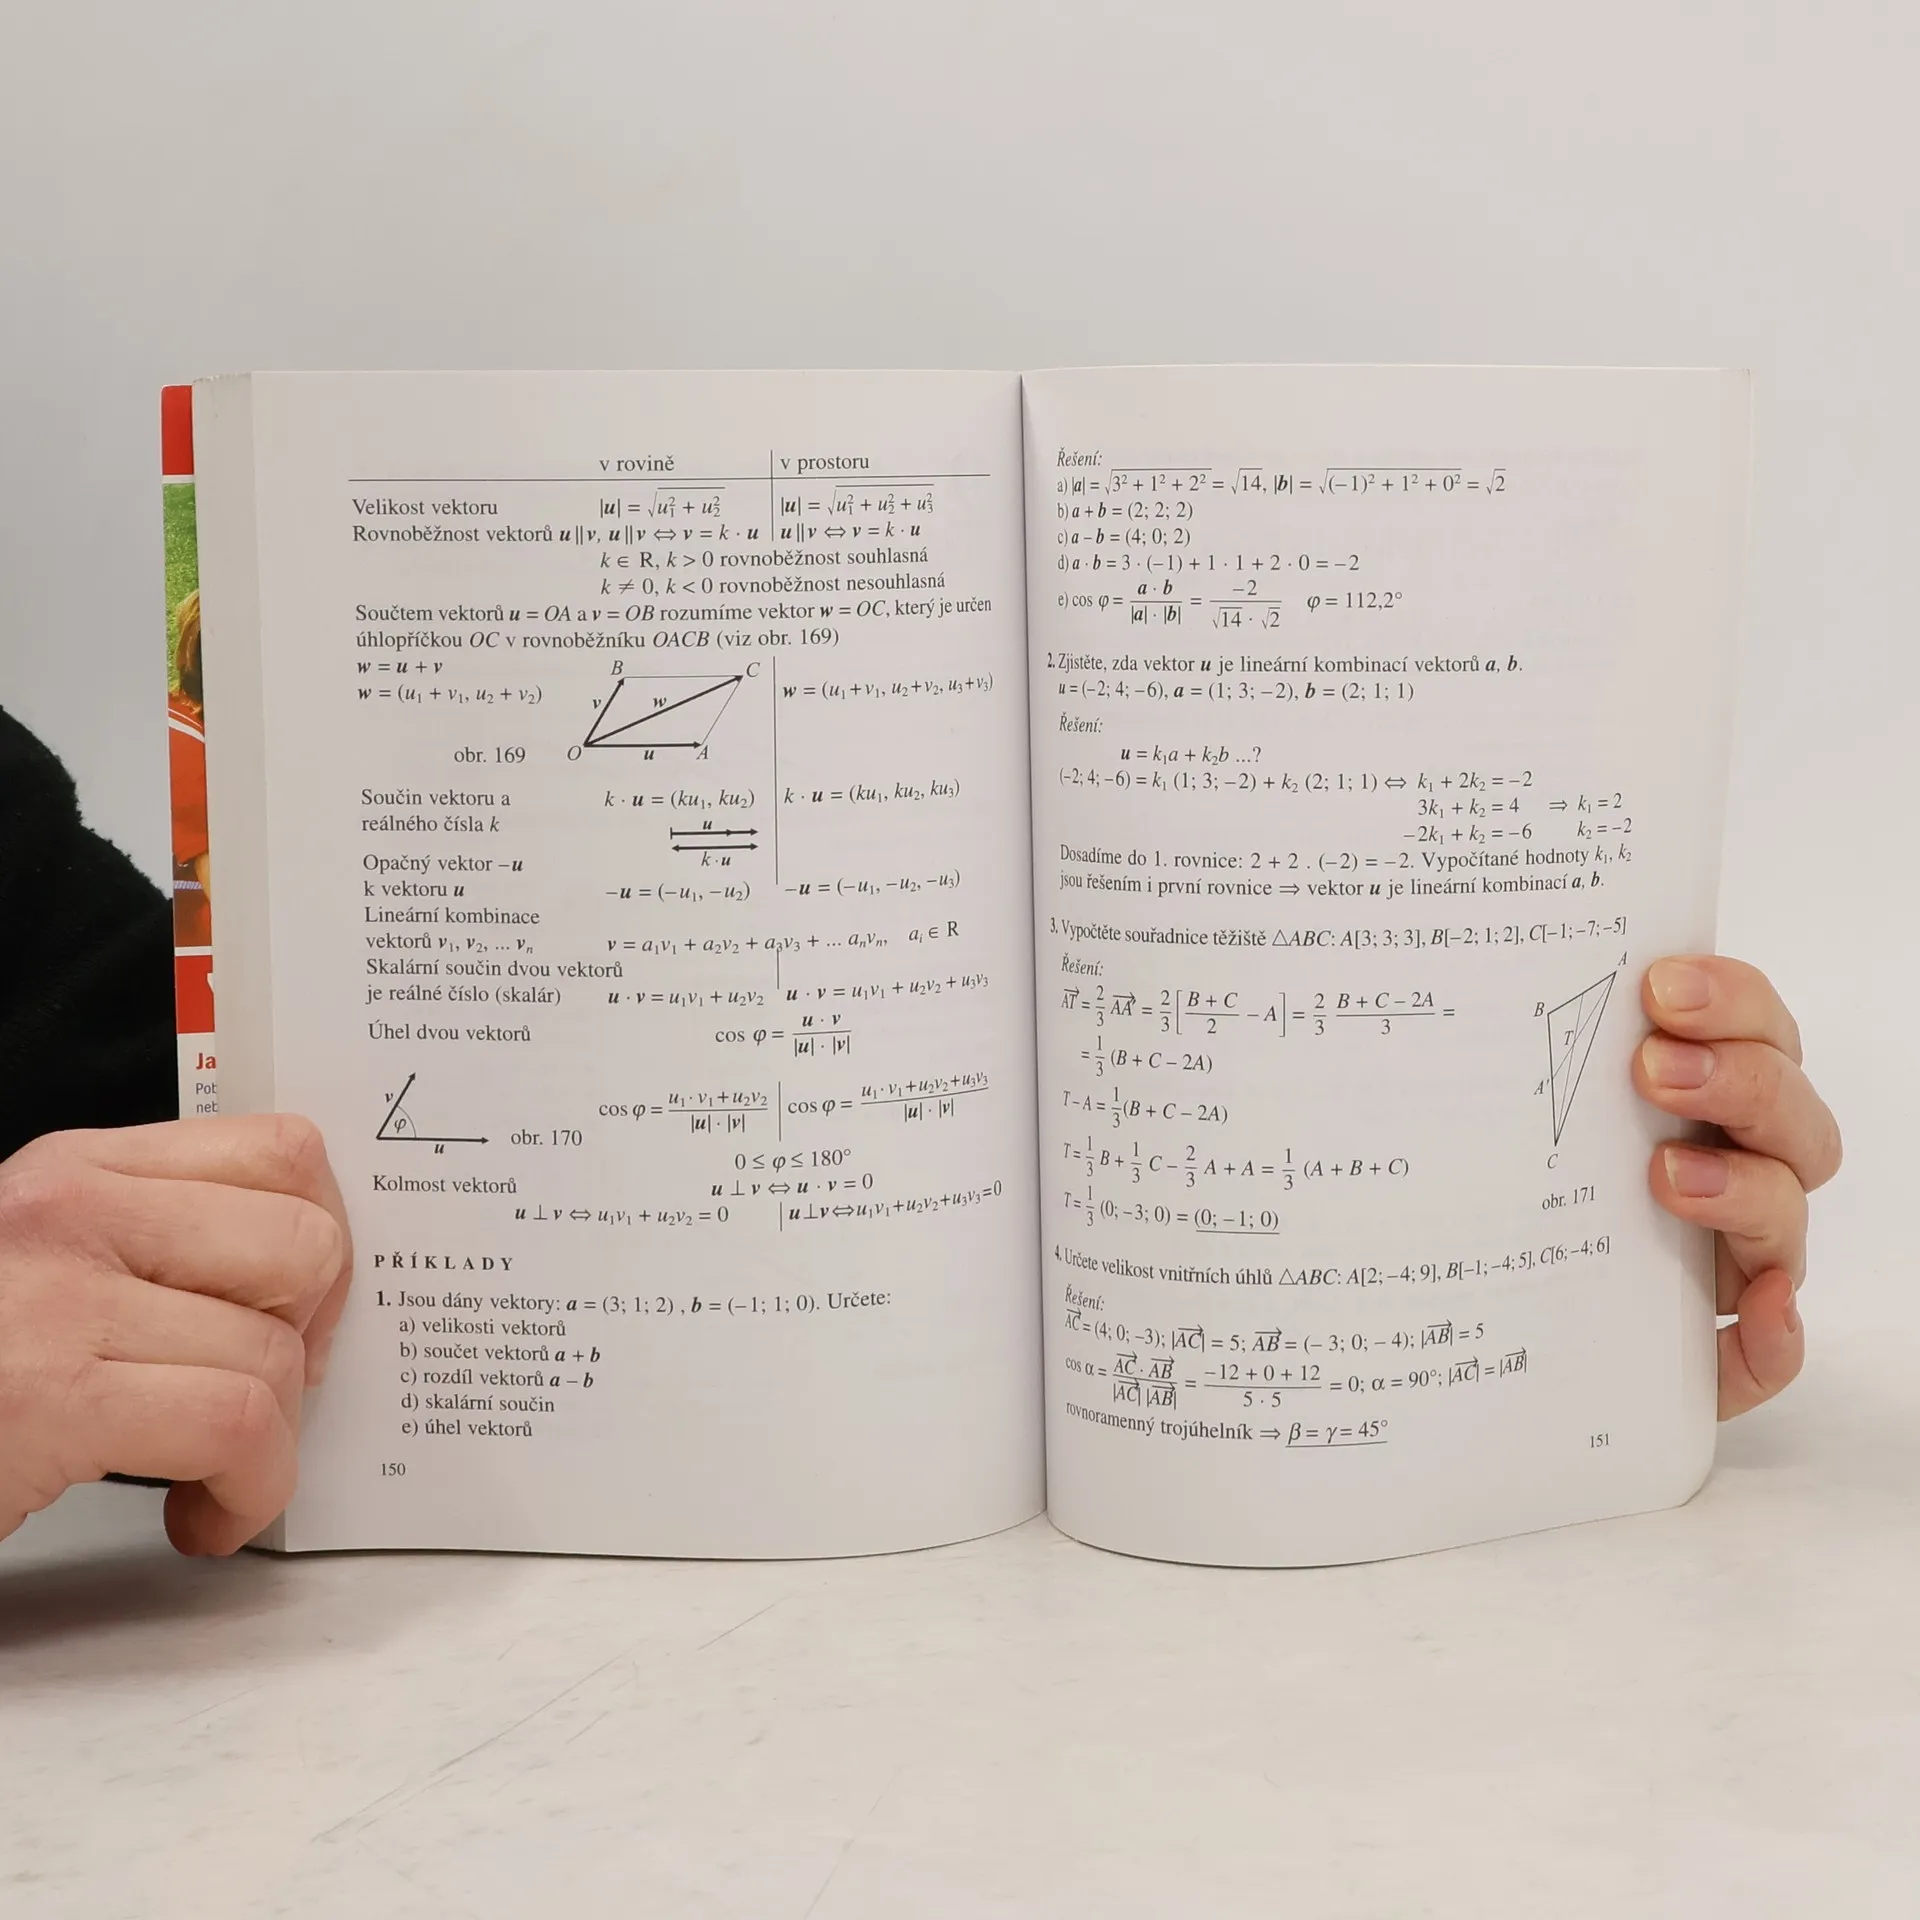 v rovině v prostoru
Velikost vektoru |u| = √(u₁² + u₂²) |u| = √(u₁² + u₂² + u₃²)
Rovnoběžnost vektorů u || v, u || v ⇔ v = k · u u || v ⇔ v = k · u
k ∈ R, k > 0 rovnoběžnost souhlasná
k ≠ 0, k < 0 rovnoběžnost nesouhlasná
Součtem vektorů u = OA a v = OB rozumíme vektor w = OC, který je určen
úhlopříčkou OC v rovnoběžníku OACB (viz obr. 169)
w = u + v
w = (u₁ + v₁, u₂ + v₂) w = (u₁+v₁, u₂+v₂, u₃+v₃)
B C
v w
O u A
obr. 169
Součin vektoru a k · u = (ku₁, ku₂) k · u = (ku₁, ku₂, ku₃)
reálného čísla k
u
k·u
Opačný vektor –u
k vektoru u –u = (–u₁, –u₂) –u = (–u₁, –u₂, –u₃)
Lineární kombinace
vektorů v₁, v₂, ... vₙ v = a₁v₁ + a₂v₂ + a₃v₃ + ... aₙvₙ, aᵢ ∈ R
Skalární součin dvou vektorů
je reálné číslo (skalár) u · v = u₁v₁ + u₂v₂ u · v = u₁v₁ + u₂v₂ + u₃v₃
Úhel dvou vektorů cos φ = (u · v)/(|u| · |v|)
v φ u
obr. 170 cos φ = (u₁· v₁+u₂v₂)/(|u| · |v|) cos φ = (u₁· v₁+u₂v₂+u₃v₃)/(|u| · |v|)
0 ≤ φ ≤ 180°
Kolmost vektorů u ⊥ v ⇔ u · v = 0
u ⊥ v ⇔ u₁v₁ + u₂v₂ = 0 u⊥v⇔u₁v₁+u₂v₂+u₃v₃=0
PŘÍKLADY
1. Jsou dány vektory: a = (3; 1; 2) , b = (–1; 1; 0). Určete:
a) velikosti vektorů
b) součet vektorů a + b
c) rozdíl vektorů a – b
d) skalární součin
e) úhel vektorů
150
Řešení:
a) |a| = √(3² + 1² + 2²) = √14, |b| = √((–1)² + 1² + 0²) = √2
b) a + b = (2; 2; 2)
c) a – b = (4; 0; 2)
d) a · b = 3 · (–1) + 1 · 1 + 2 · 0 = –2
e) cos φ = (a · b)/(|a| · |b|) = –2/(√14 · √2) φ = 112,2°
2. Zjistěte, zda vektor u je lineární kombinací vektorů a, b.
u = (–2; 4; –6), a = (1; 3; –2), b = (2; 1; 1)
Řešení:
u = k₁a + k₂b ...?
(–2; 4; –6) = k₁ (1; 3; –2) + k₂ (2; 1; 1) ⇔ k₁ + 2k₂ = –2
3k₁ + k₂ = 4 ⇒ k₁ = 2
–2k₁ + k₂ = –6 k₂ = –2
Dosadíme do 1. rovnice: 2 + 2 . (–2) = –2. Vypočítané hodnoty k₁, k₂
jsou řešením i první rovnice ⇒ vektor u je lineární kombinací a, b.
3. Vypočtěte souřadnice těžiště △ABC: A[3; 3; 3], B[–2; 1; 2], C[–1; –7; –5]
Řešení:
AT⃗ = 2/3 AA'⃗ = 2/3 [(B + C)/2 – A] = 2/3 (B + C – 2A)/3 =
= 1/3 (B + C – 2A)
T – A = 1/3 (B + C – 2A)
T = 1/3 B + 1/3 C – 2/3 A + A = 1/3 (A + B + C)
T = 1/3 (0; –3; 0) = (0; –1; 0)
A
B
T
A'
C
obr. 171
4. Určete velikost vnitřních úhlů △ABC: A[2; –4; 9], B[–1; –4; 5], C[6; –4; 6]
Řešení:
AC⃗ = (4; 0; –3); |AC⃗| = 5; AB⃗ = (– 3; 0; – 4); |AB⃗| = 5
cos α = (AC⃗ · AB⃗)/(|AC⃗| |AB⃗|) = (–12 + 0 + 12)/(5 · 5) = 0; α = 90°; |AC⃗| = |AB⃗|
rovnoramenný trojúhelník ⇒ β = γ = 45°
151
Ja